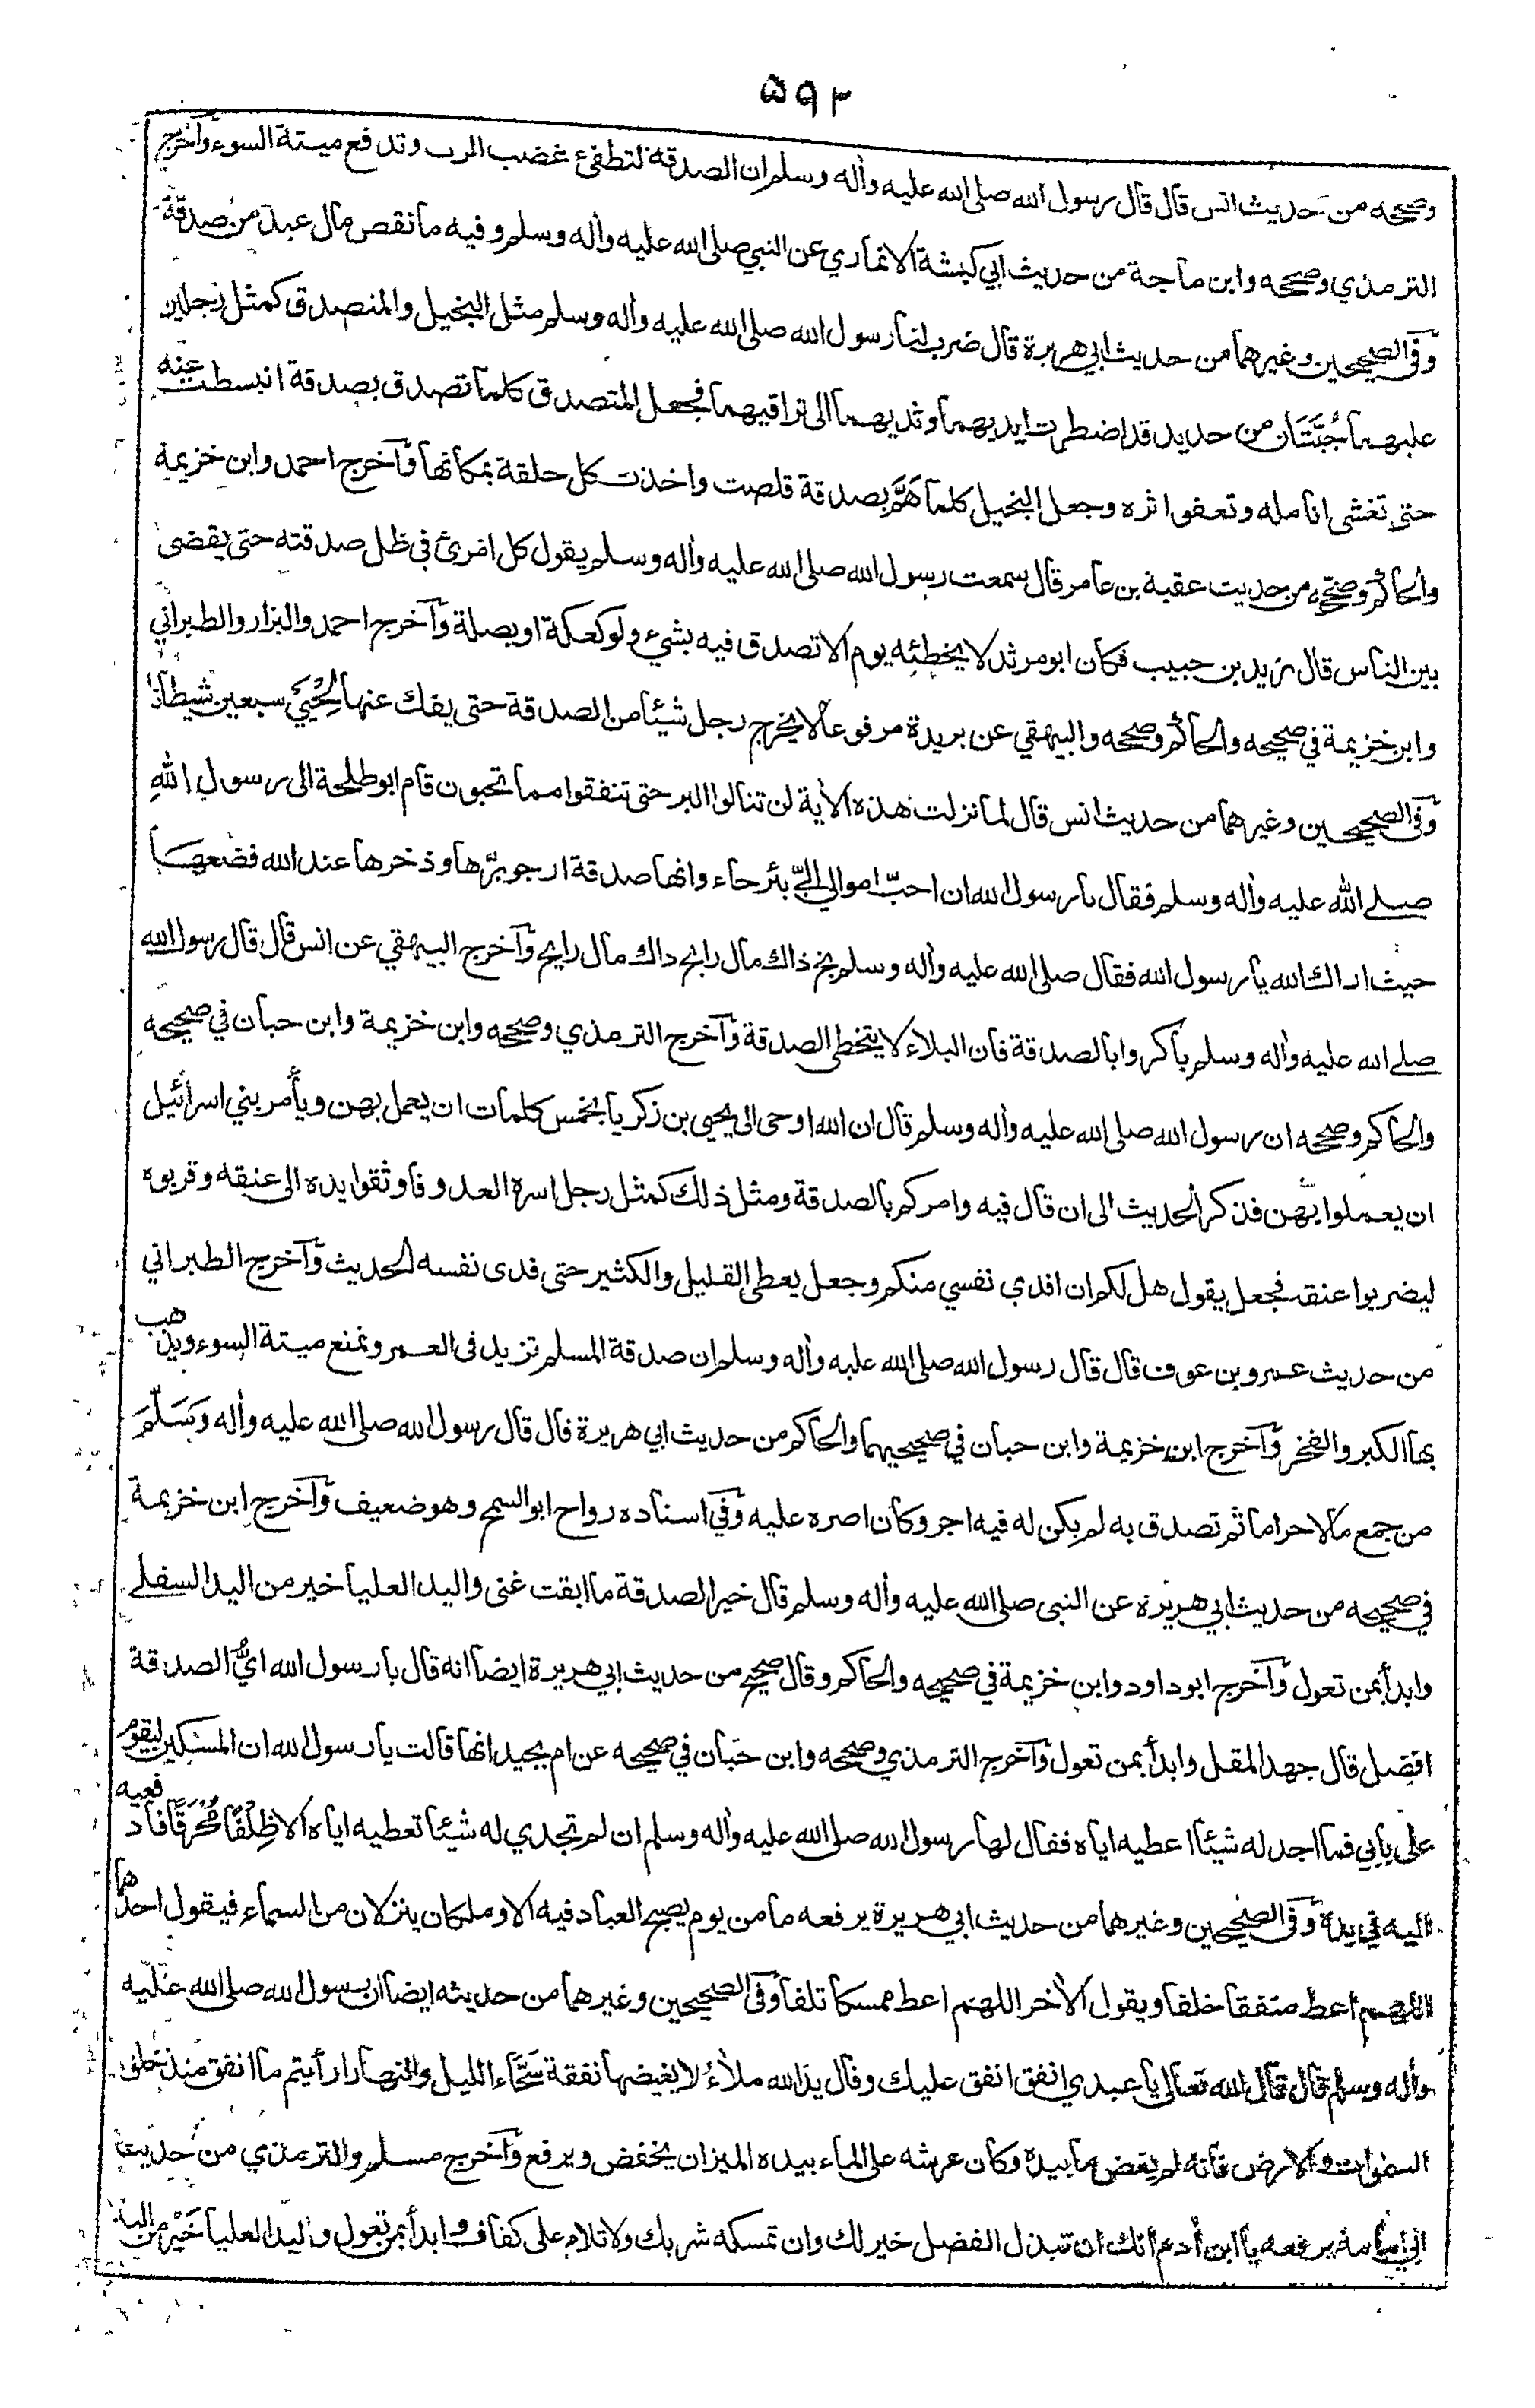 ۵۹۲
وصححه من حديث انس قال قال رسول الله صلى الله عليه واٰله وسلم ان الصدقة لتطفئ غضب الرب وتدفع ميتة السوء وآخرج
الترمذي وصححه وابن ماجة من حديث ابي كبشة الانماري عن النبي صلى الله عليه واٰله وسلم وفيه ما نقص مال عبد من صدقة
وفى الصحيحين وغيرهما من حديث ابي هريرة قال ضرب لنا رسول الله صلى الله عليه واٰله وسلم مثل البخيل والمتصدق كمثل رجلين
عليهما جُبَّتَان من حديد قد اضطرت ايديهما وثديهما الى تراقيهما فجعل المتصدق كلما تصدق بصدقة انبسطت عنه
حتى تغشى انامله وتعفو اثره وجعل البخيل كلما هَمَّ بصدقة قلصت واخذت كل حلقة بمكانها وآخرج احمد وابن خزيمة
والحاكم وصححه من حديث عقبة بن عامر قال سمعت رسول الله صلى الله عليه واٰله وسلم يقول كل امرئ في ظل صدقته حتى يقضى
بين الناس قال يزيد بن حبيب فكان ابو مرثد لا يخطئه يوم الا تصدق فيه بشيء ولو كعكة او بصلة وآخرج احمد والبزار والطبراني
وابن خزيمة في صحيحه والحاكم وصححه والبيهقي عن بريدة مرفوعا لا يخرج رجل شيئا من الصدقة حتى يفك عنها لِحْيَيْ سبعين شيطانا
وفى الصحيحين وغيرهما من حديث انس قال لما نزلت هذه الاٰية لن تنالوا البر حتى تنفقوا مما تحبون قام ابو طلحة الى رسول الله
صلى الله عليه واٰله وسلم فقال يا رسول الله ان احبّ اموالي اليّ بئرحاء وانها صدقة ارجو برّها وذخرها عند الله فضعها
حيث اراك الله يا رسول الله فقال صلى الله عليه واٰله وسلم بخ ذاك مال رابح ذاك مال رابح وآخرج البيهقي عن انس قال قال رسول الله
صلى الله عليه واٰله وسلم باكروا بالصدقة فان البلاء لا يتخطى الصدقة وآخرج الترمذي وصححه وابن خزيمة وابن حبان في صحيحه
والحاكم وصححه ان رسول الله صلى الله عليه واٰله وسلم قال ان الله اوحى الى يحيى بن زكريا بخمس كلمات ان يعمل بهن ويأمر بني اسرائيل
ان يعملوا بهن فذكر الحديث الى ان قال فيه وامركم بالصدقة ومثل ذلك كمثل رجل اسره العدو فاوثقوا يده الى عنقه وقربوه
ليضربوا عنقه فجعل يقول هل لكم ان افدي نفسي منكم وجعل يعطى القليل والكثير حتى فدى نفسه الحديث وآخرج الطبراني
من حديث عمرو بن عوف قال قال رسول الله صلى الله عليه واٰله وسلم ان صدقة المسلم تزيد فى العمر وتمنع ميتة السوء ويذهب
بها الكبر والفخر وآخرج ابن خزيمة وابن حبان في صحيحيهما والحاكم من حديث ابي هريرة قال قال رسول الله صلى الله عليه واٰله وَسَلَّمَ
من جمع مالا حراما ثم تصدق به لم يكن له فيه اجر وكان اصره عليه وفي اسناده رواح ابو السمح وهو ضعيف وآخرج ابن خزيمة
في صحيحه من حديث ابي هريرة عن النبى صلى الله عليه واٰله وسلم قال خير الصدقة ما ابقت غنى واليد العليا خير من اليد السفلى
وابدأ بمن تعول وآخرج ابو داود وابن خزيمة في صحيحه والحاكم وقال صحيح من حديث ابي هريرة ايضا انه قال يا رسول الله ايُّ الصدقة
افضل قال جهد المقل وابدأ بمن تعول وآخرج الترمذي وصححه وابن حبّان في صحيحه عن ام بجيد انها قالت يا رسول الله ان المسكين ليقوم
على بابي فما اجد له شيئا اعطيه اياه فقال لها رسول الله صلى الله عليه واٰله وسلم ان لم تجدي له شيئا تعطيه اياه الا ظِلْفًا مُحْرَقًا فادفعيه
اليه في يده وفى الصحيحين وغيرهما من حديث ابي هريرة يرفعه ما من يوم يصبح العباد فيه الا وملكان ينزلان من السماء فيقول احدهما
اللهم اعط منفقا خلفا ويقول الاٰخر اللهم اعط ممسكا تلفا وفى الصحيحين وغيرهما من حديثه ايضا ان رسول الله صلى الله عليه
واٰله وسلم قال قال الله تعالى يا عبدي انفق انفق عليك وقال يد الله ملاٰءُ لا يغيضها نفقة سَحَّاء الليل والنهار ارأيتم ما انفق منذ خلق
السموات والارض فانه لم يغض ما بيده وكان عرشه على الماء بيده الميزان يخفض ويرفع وآخرج مسلم والترمذي من حديث
ابي امامة يرفعه يا ابن اٰدم انك ان تبذل الفضل خير لك وان تمسكه شر بك ولا تلام على كفاف وابدأ بمن تعول واليد العليا خَيْر من اليد